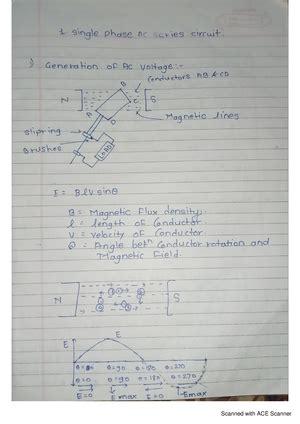 1 single phase AC series circuit.
1) Generation of AC Voltage:-
Conductors AB & CD
B
N
S
A
C
D
Magnetic lines
slipring
Brushes
Load
E = Blv sinθ
B = Magnetic Flux density
l = length of Conductor
V = velocity of Conductor
θ = Angle betn Conductor rotation and
Magnetic Field.
N
S
E
E
θ=90
θ=180
θ=270
θ=0
θ=90
θ=180
θ=270
E=0
Emax
E=0
-Emax
Scanned with ACE Scanner